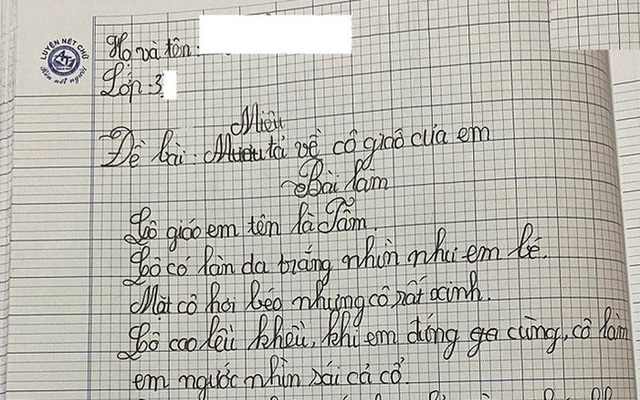 LUYỆN NÉT CHỮ
Rèn nét người
Họ và tên:
Lớp: 3
Miêu
Đề bài: Mươu tả về cô giáo của em
Bài làm
Cô giáo em tên là Tâm.
Cô có làn da trắng nhìn như em bé.
Mặt cô hơi béo nhưng cô rất xinh.
Cô cao lêu khêu, khi em đứng ga cùng, cô làm
em ngước nhìn sái cả cổ.